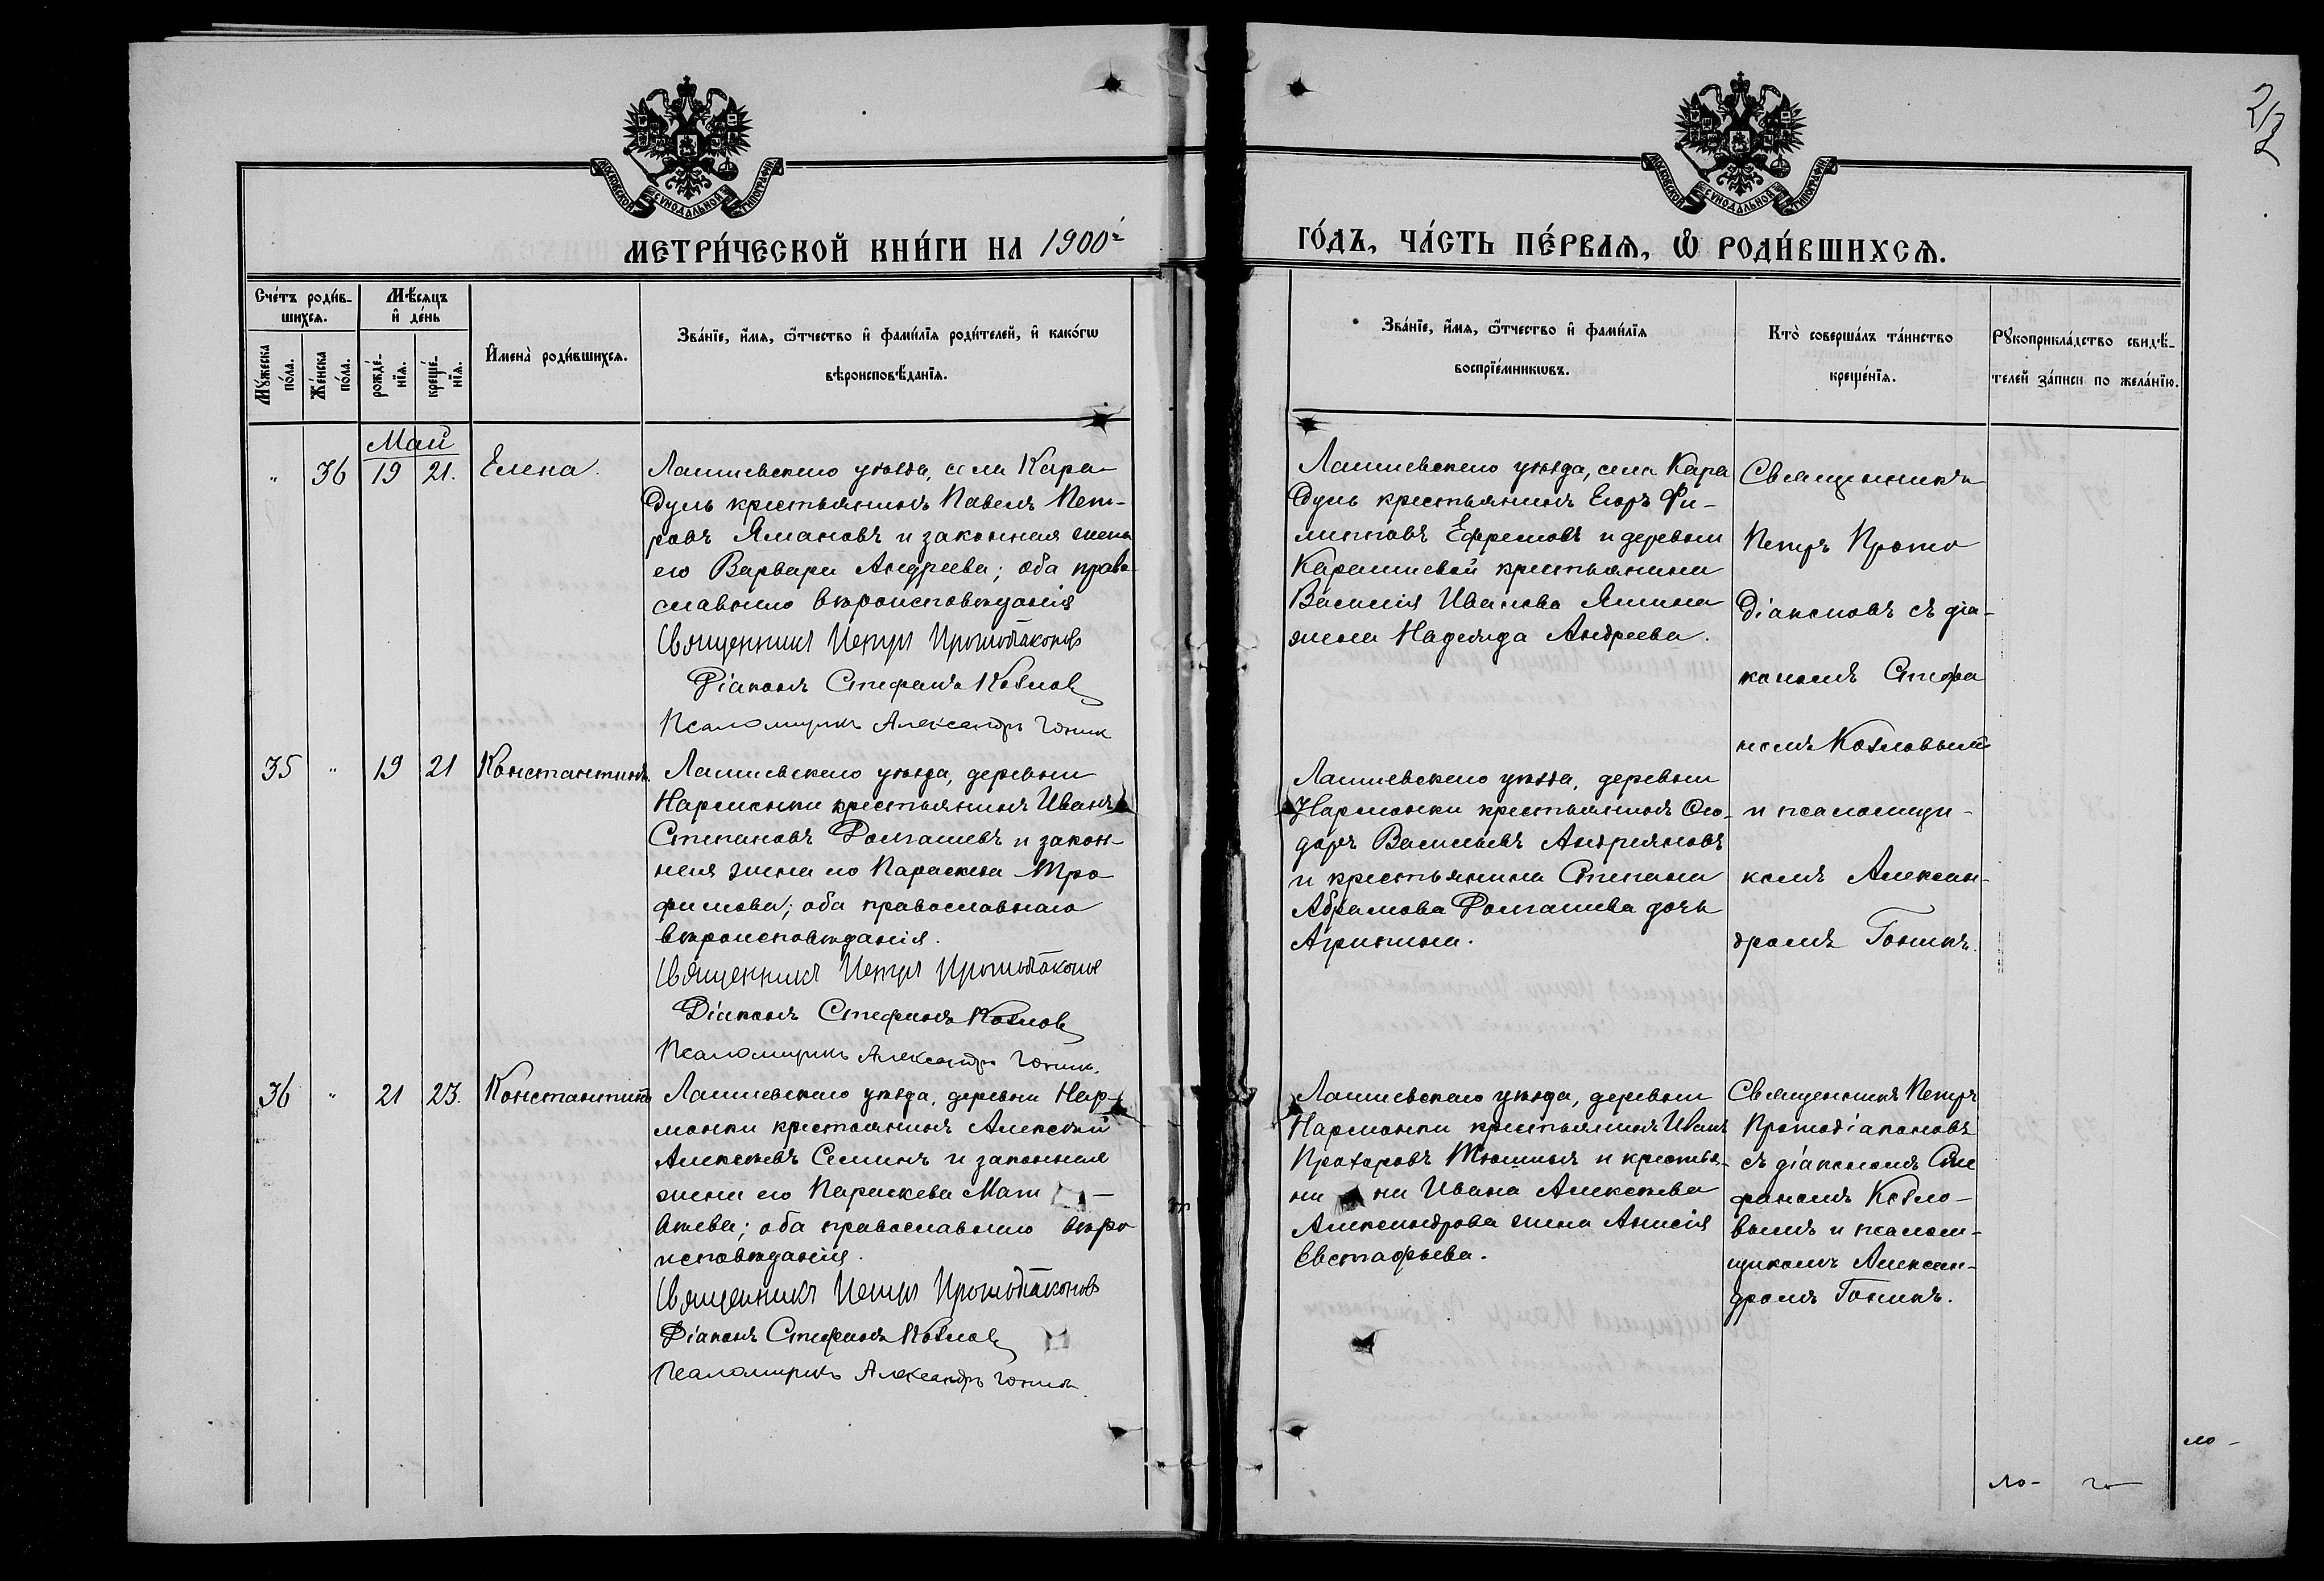 2/2
МОСКОВСКОЙ СѴНОДАЛЬНОЙ ТИПОГРАФІИ
МОСКОВСКОЙ СѴНОДАЛЬНОЙ ТИПОГРАФІИ
МЕТРИ́ЧЕСКОЙ КНИ́ГИ НА 1900й
ГО́ДЪ, ЧА́СТЬ ПЕ́РВАѦ, Ѿ РОДИ́ВШИХСѦ.
Сче́тъ роди́в-
шихсѧ.
Мѣ́сѧцъ
и҆ де́нь
Мꙋ́жеска
по́ла.
Же́нска
по́ла.
рожде́-
нїѧ.
креще́-
нїѧ.
И҆мена̀ роди́вшихсѧ.
Зва́нїе, и҆́мѧ, ѻ҆́тчество и҆ фами́лїѧ роди́телей, и҆ како́гѡ
вѣроисповѣ́данїѧ.
Зва́нїе, и҆́мѧ, ѻ҆́тчество и҆ фами́лїѧ
воспрїе́мникѡвъ.
Кто̀ соверша́лъ та́инство
креще́нїѧ.
Рꙋкоприкла́дство свидѣ́-
телей за́писи по жела́нїю.
Май
" 36 19 21. Елена.
Лаишевскаго уѣзда, села Кара-
дуль крестьянинъ Павелъ Пет-
ровъ Ямановъ и законная жена
его Варвара Андреева; оба право
славнаго вѣроисповѣданія
Священникъ Петръ Протодіаконовъ
Діаконъ Стефанъ Козлов
Псаломщикъ Александръ Гоник
Лаишевскаго уѣзда, села Кара
дуль крестьянинъ Егоръ Фи-
липповъ Ефремовъ и деревни
Карашевой крестьянина
Василія Иванова Яшина
жена Надежда Андреева.
Священникъ
Петръ Прото
діаконовъ съ діа-
кономъ Стефа
номъ Козловымъ
и псаломщи-
комъ Алексан-
дромъ Гоникъ.
35 " 19 21 Константинъ.
Лаишевскаго уѣзда, деревни
Нармонки крестьянинъ Иванъ
Степановъ Ромашевъ и закон-
ная жена его Параскева Тро
фимова; оба православнаго
вѣроисповѣданія.
Священникъ Петръ Протодіаконов
Діаконъ Стефанъ Козлов
Псаломщикъ Александръ Гоникъ.
Лаишевскаго уѣзда, деревни
Нармонки крестьянинъ Ѳео-
доръ Васильевъ Андрияновъ
и крестьянина Степана
Абрамова Ромашева дочь
Агрипина.
36 " 21 23. Константинъ
Лаишевскаго уѣзда, деревни Нар-
монки крестьянинъ Алексѣй
Алексѣевъ Семинъ и законная
жена его Параскева Мат -
вѣева; оба православнаго вѣро
исповѣданія.
Священникъ Петръ Протодіаконовъ
Діаконъ Стефанъ Козлов
Псаломщикъ Александръ Гоникъ.
Лаишевскаго уѣзда, деревни
Нармонки крестьянинъ Иванъ
Прохоровъ Тюшинъ и крестья-
ни на Ивана Алексѣева
Александрова жена Анисія
Евстафьева.
Священникъ Петръ
Протодіаконовъ
съ діакономъ Сте
фаномъ Козло-
вымъ и псалом-
щикомъ Алексан-
дромъ Гоникъ.